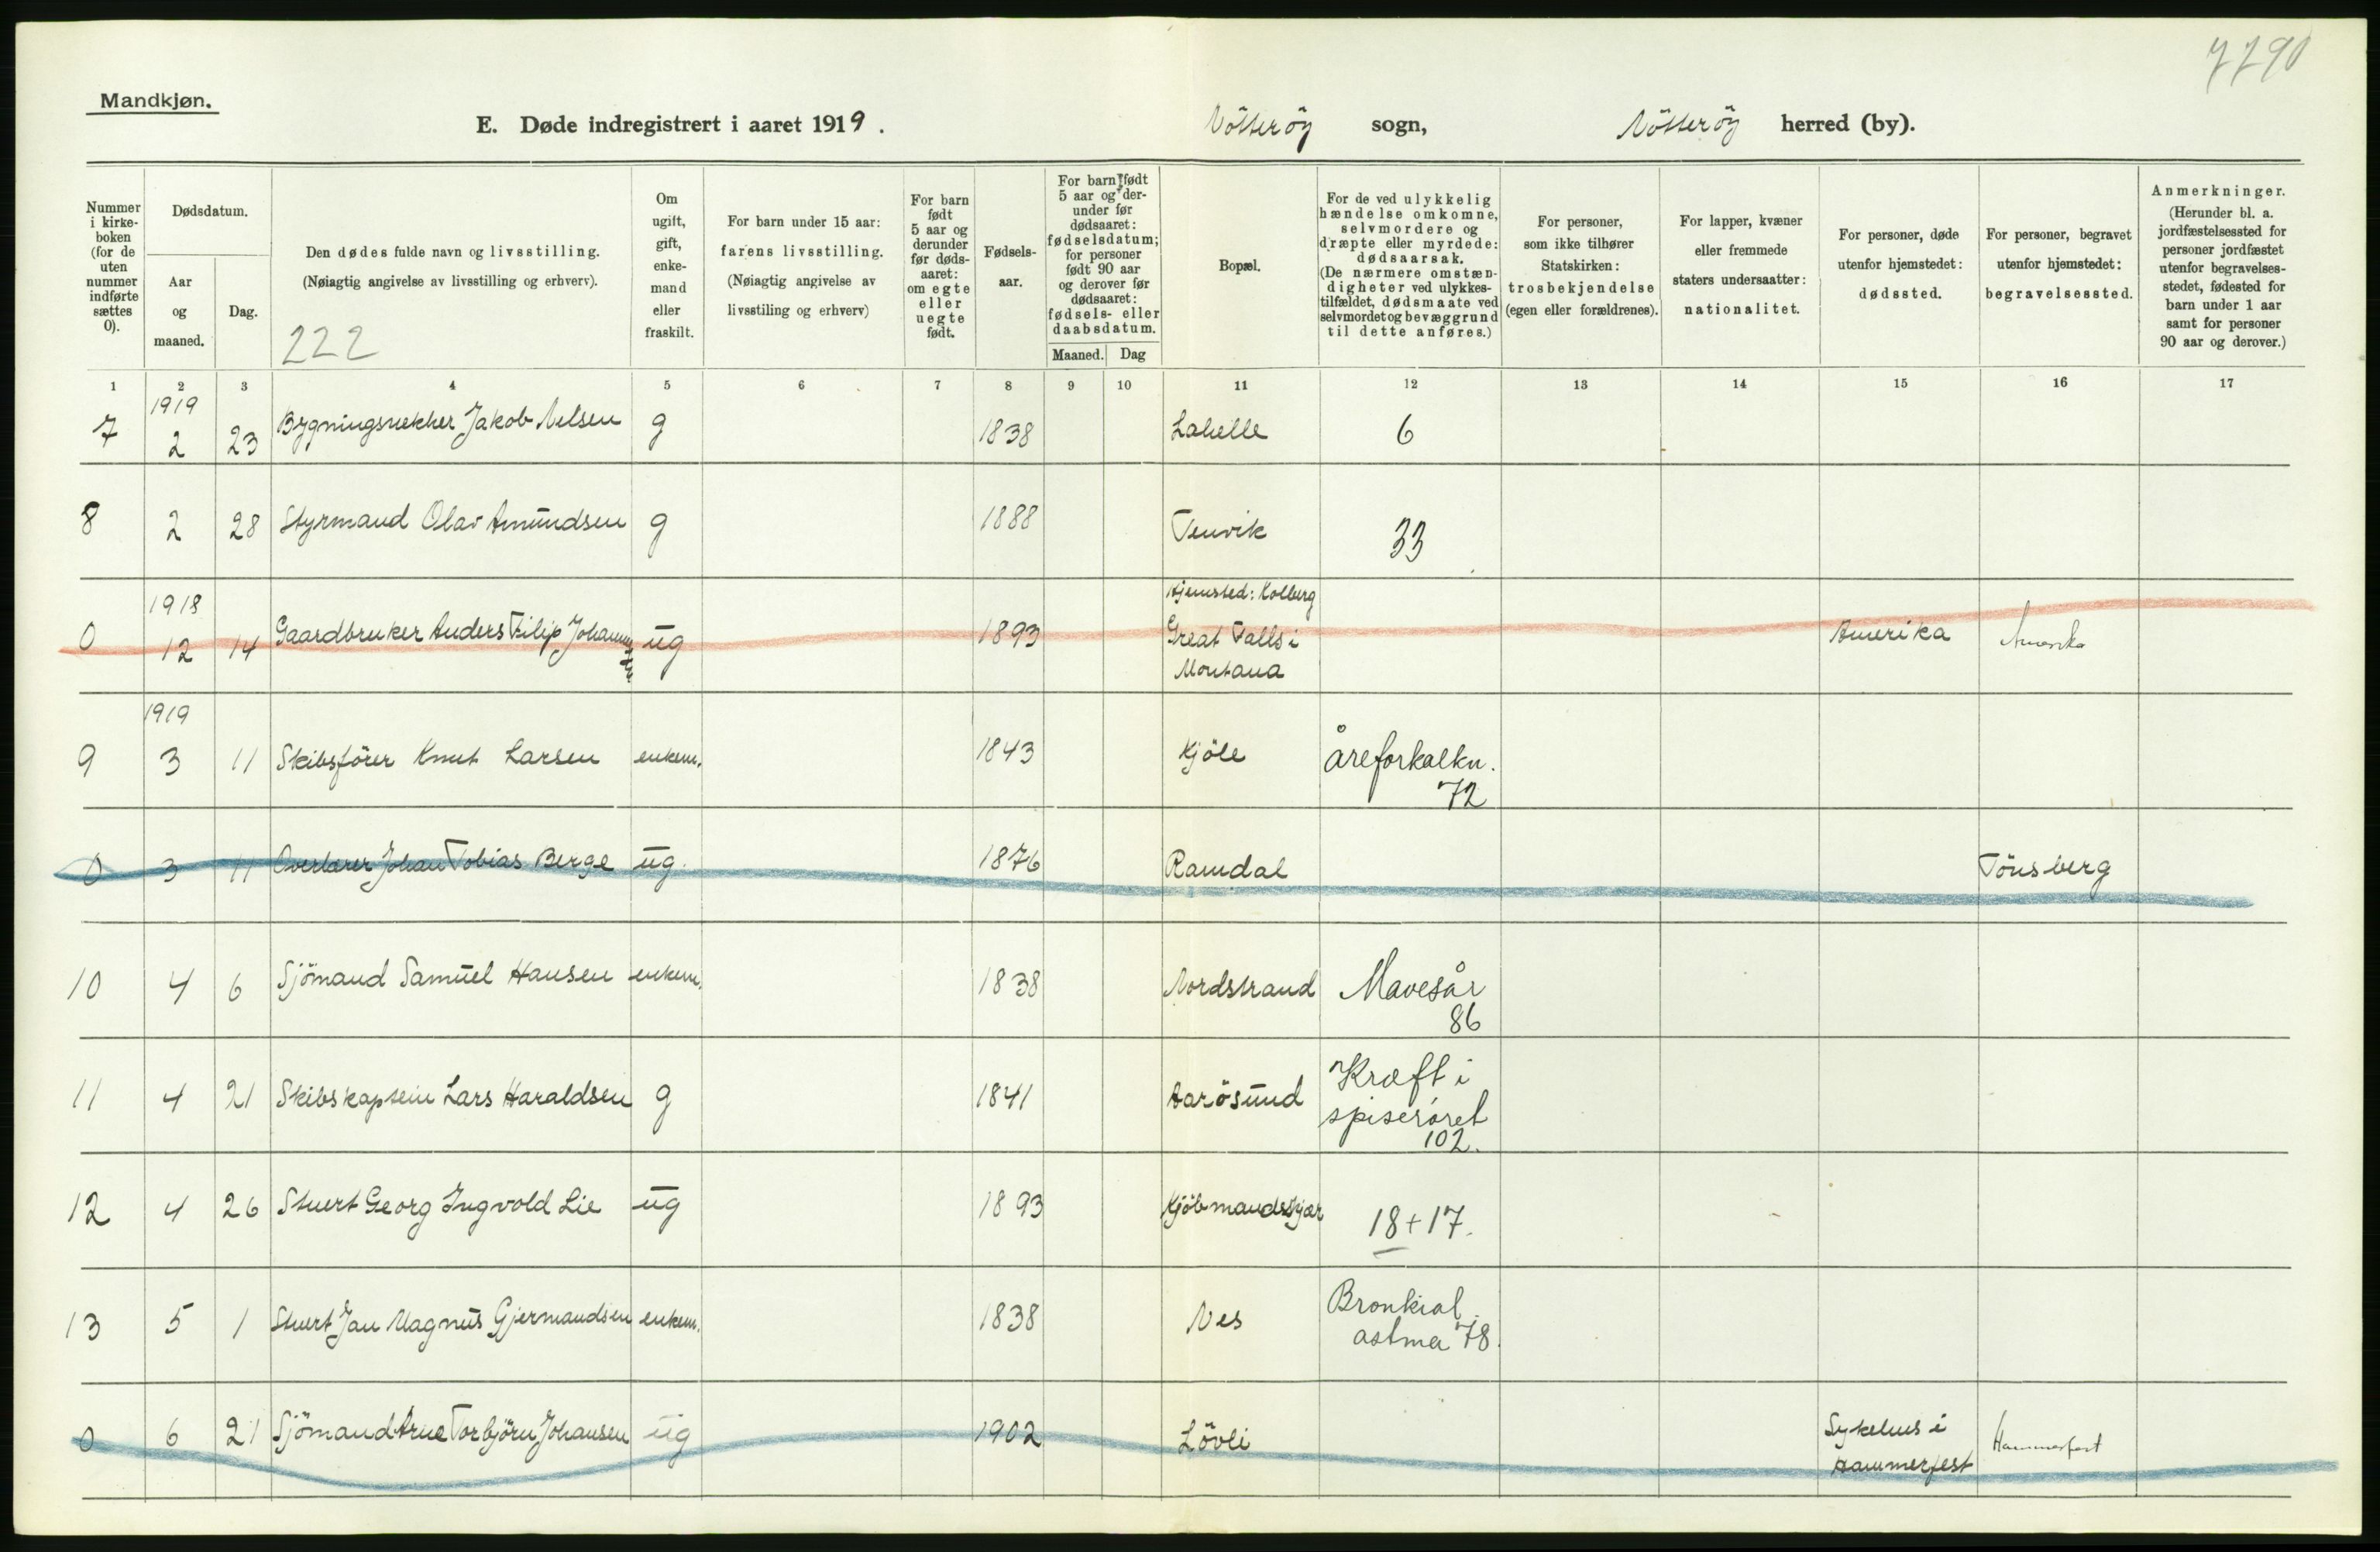 7290
Mandkjøn.
E. Døde indregistrert i aaret 1919. Nötteröy sogn, Nötteröy herred (by).
Nummer i kirke-boken (for de uten nummer indførte sættes 0).
Dødsdatum.
Aar og maaned.
Dag.
Den dødes fulde navn og livsstilling.
(Nøiagtig angivelse av livsstilling og erhverv).
222
Om ugift, gift, enke-mand eller fraskilt.
For barn under 15 aar:
farens livsstilling.
(Nøiagtig angivelse av livsstiling og erhverv)
For barn født 5 aar og derunder før døds-aaret: om egte eller uegte født.
Fødsels-aar.
For barn født 5 aar og der-under før dødsaaret: fødselsdatum; for personer født 90 aar og derover før dødsaaret: fødsels- eller daabsdatum.
Maaned. Dag
Bopæl.
For de ved ulykkelig hændelse omkomne, selvmordere og dræpte eller myrdede: dødsaarsak. (De nærmere omstæn-digheter ved ulykkes-tilfældet, dødsmaate ved selvmordet og bevæggrund til dette anføres.)
For personer, som ikke tilhører Statskirken: trosbekjendelse (egen eller forældrenes).
For lapper, kvæner eller fremmede staters undersaatter: nationalitet.
For personer, døde utenfor hjemstedet: dødssted.
For personer, begravet utenfor hjemstedet: begravelsessted.
Anmerkninger.
(Herunder bl. a. jordfæstelsessted for personer jordfæstet utenfor begravelses-stedet, fødested for barn under 1 aar samt for personer 90 aar og derover.)
1 2 3 4 5 6 7 8 9 10 11 12 13 14 15 16 17
1919
7 2 23 Jakob Nilsen g 1838 6
8 2 28 Styrmand Olav Amundsen g 1888 Tenvik 33
1918 Hjemsted: Kolberg
0 12 14 Gaardbruker Anders Filip ug 1893 Great Falls i Amerika Amerika
Montana
1919
9 3 11 Skibsförer Knut Larsen enkem. 1843 Kjöle Åreforkalkn.
72
0 3 11 Overlærer Johan Tobias Berge ug. 1876 Ramdal Tönsberg
10 4 6 Sjömand Samuel Hansen enkem. 1838 Nordstrand Mavesår
86
11 4 21 Skibskaptein Lars Haraldsen g 1841 Aarösund Kræft i
spiserøret
102.
12 4 26 Stuert Georg Ingvold Lie ug 1893 Kjöbmandskjær 18+17.
13 5 1 Stuert Jan Magnus Gjermandsen enkem. 1838 Nes Bronkial
astma 78.
0 6 21 Sjömand Arne Torbjörn Johansen ug 1902 Lövli Sykehus i Hammerfest
Hammerfest